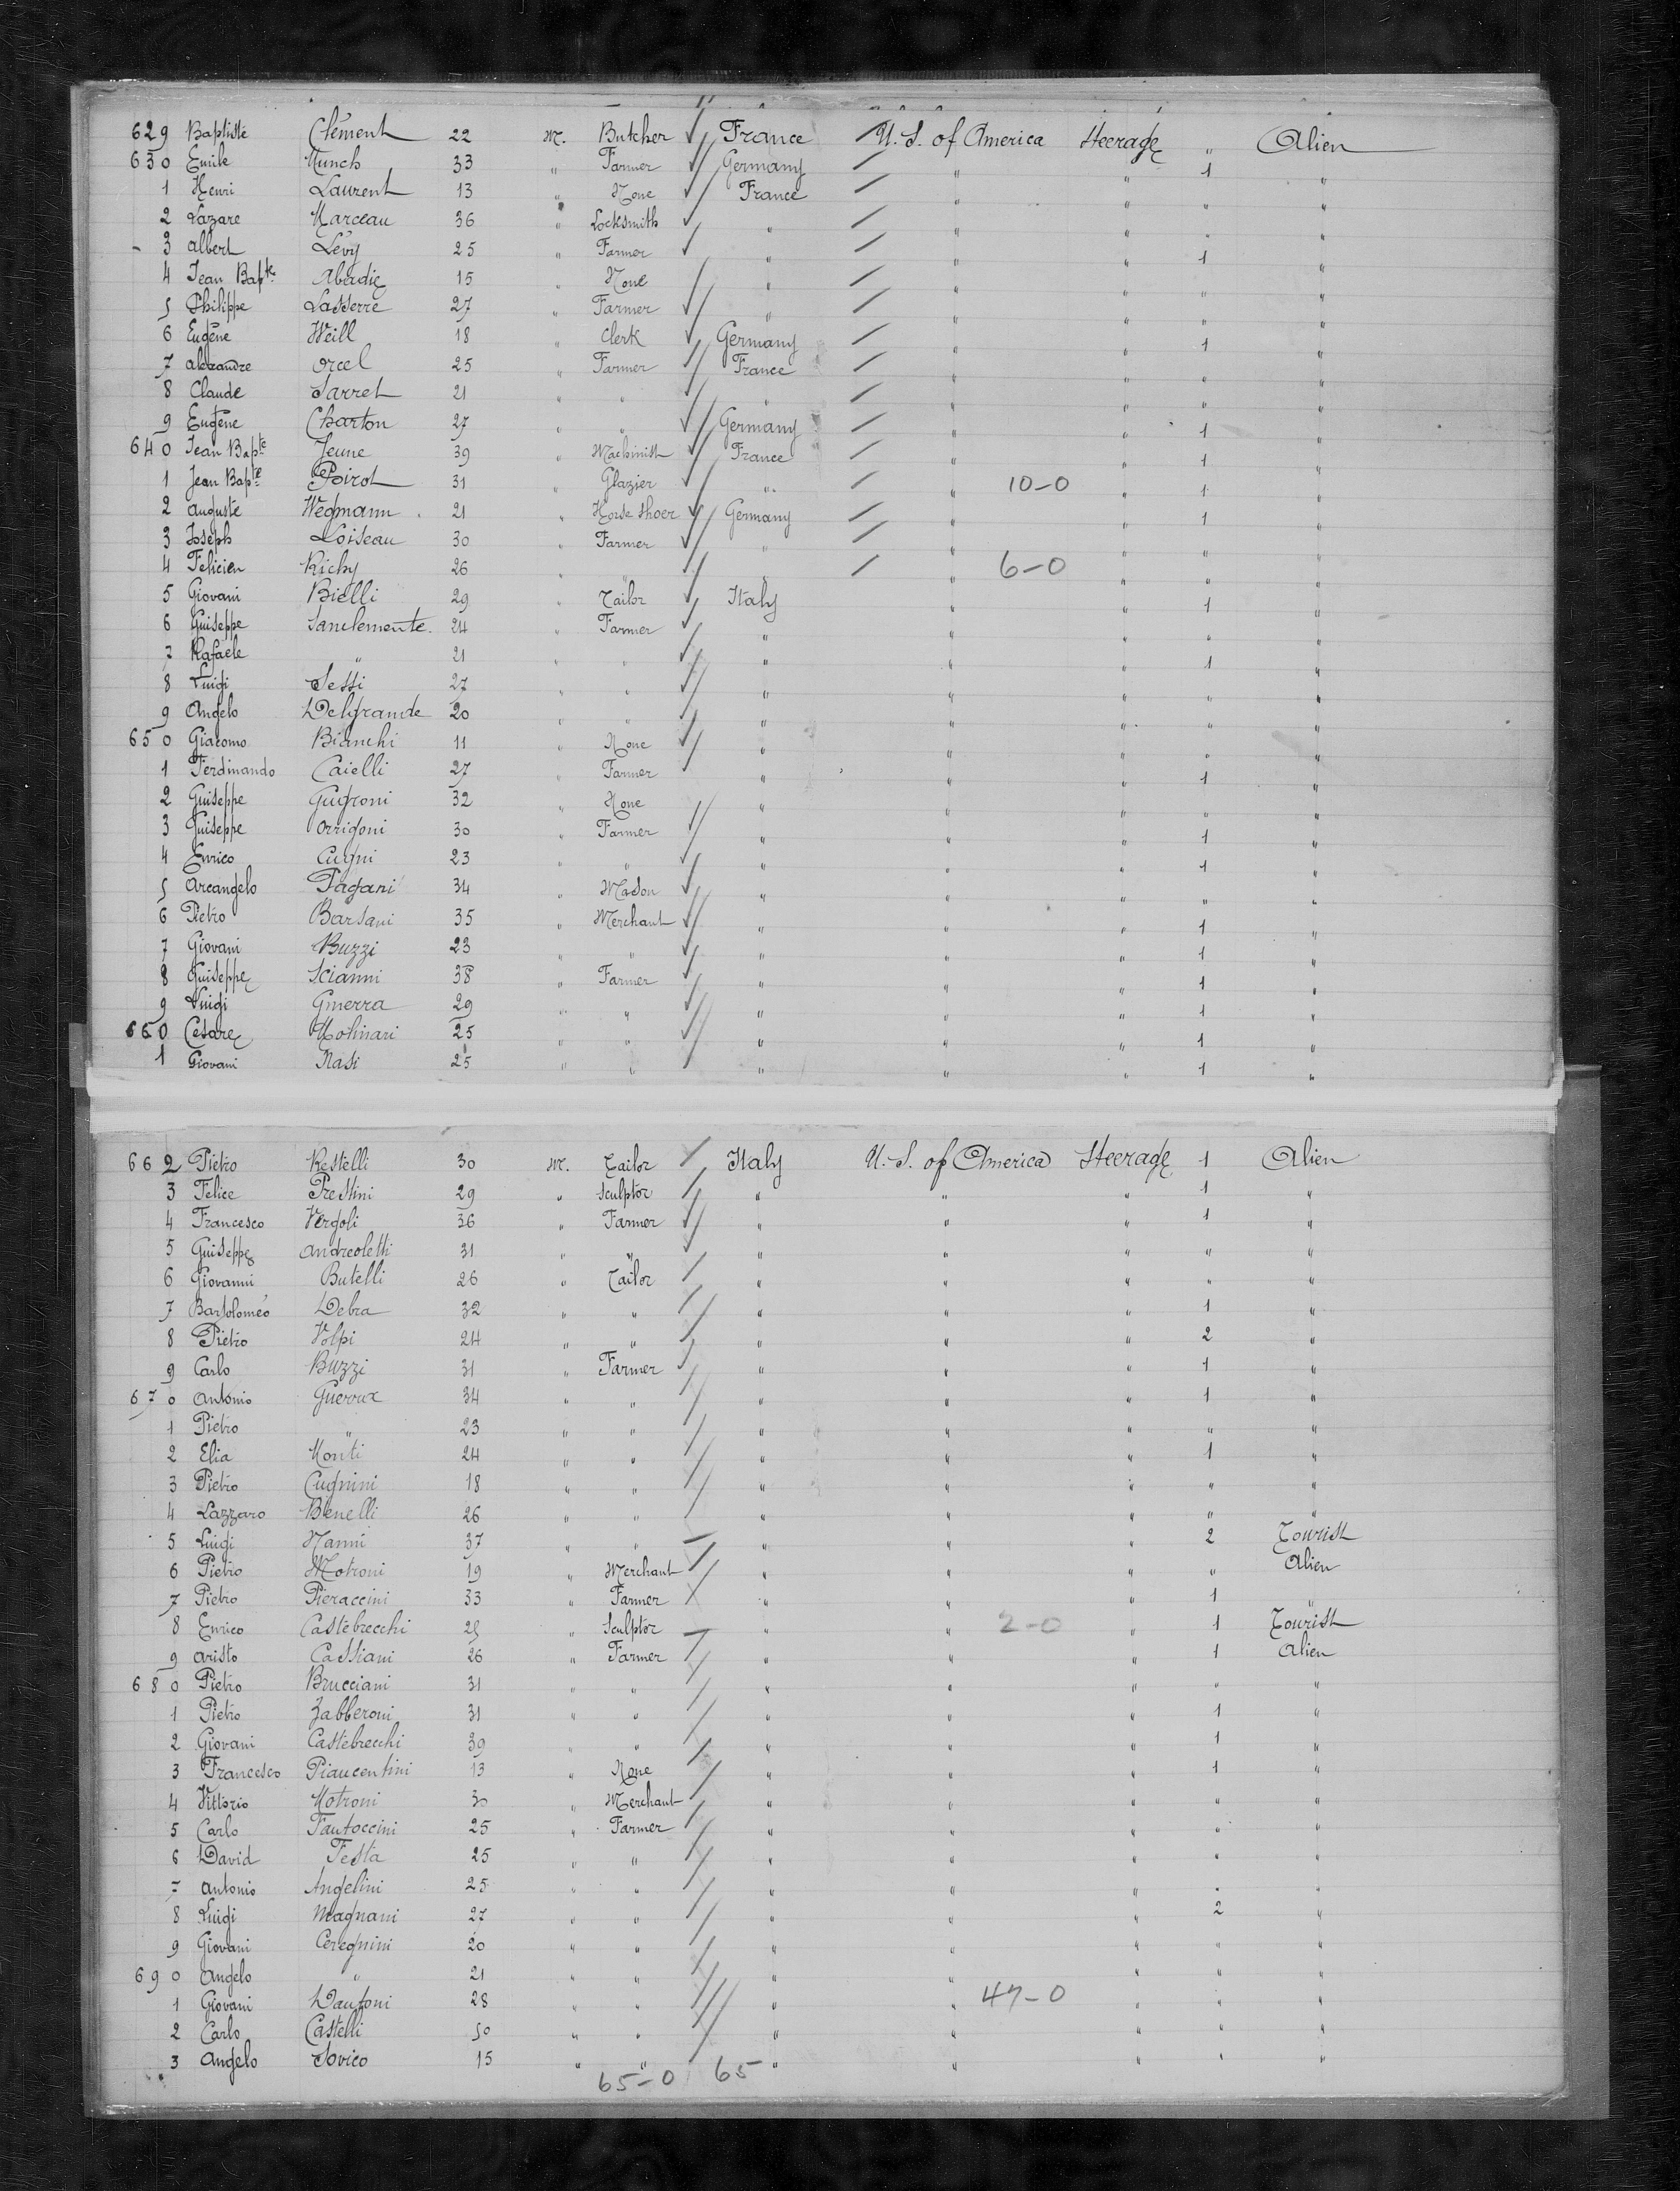 629 Baptiste Clément 22 M. Butcher France U.S. of America Steerage " Alien
630 Emile Munch 33 " Farmer Germany " " 1 "
1 Henri Laurent 13 " None France " " " "
2 Lazare Marceau 36 " Locksmith " " " " "
3 Albert Lévy 25 " Farmer " " " 1 "
4 Jean Bapte Abadie 15 " None " " " " "
5 Philippe Lasserre 27 " Farmer " " " " "
6 Eugène Weill 18 " Clerk Germany " " 1 "
7 Alexandre Orcel 25 " Farmer France " " " "
8 Claude Sarret 21 " " " " " " "
9 Eugène Charton 27 " " Germany " " 1 "
640 Jean Bapte Jeune 39 " Machinist France " " 1 "
1 Jean Bapte Poirot 31 " Glazier " " 10-0 " 1 "
2 Auguste Wegmann 21 " Horse Shoer Germany " " 1 "
3 Joseph Loiseau 30 " Farmer " " " " "
4 Felicien Richy 26 " " " " 6-0 " " "
5 Giovani Bielli 29 " Tailor Italy " " 1 "
6 Guiseppe Sanclemente 24 " Farmer " " " " "
7 Rafaele " 21 " " " " " 1 "
8 Luigi Sessi 27 " " " " " " "
9 Angelo Delgrande 20 " " " " " " "
650 Giacomo Bianchi 11 " None " " " " "
1 Ferdinando Caielli 27 " Farmer " " " 1 "
2 Guiseppe Gugroni 32 " None " " " " "
3 Guiseppe Orrigoni 30 " Farmer " " " 1 "
4 Enrico Cugni 23 " " " " " 1 "
5 Arcangelo Pagani 34 " Mason " " " " "
6 Pietro Barsani 35 " Merchant " " " 1 "
7 Giovani Buzzi 23 " " " " " 1 "
8 Guiseppe Scianni 38 " Farmer " " " 1 "
9 Luigi Gmerra 29 " " " " " 1 "
660 Cesare Molinari 25 " " " " " 1 "
1 Giovani Nasi 25 " " " " " 1 "
662 Pietro Restelli 30 M. Tailor Italy U.S. of America Steerage 1 Alien
3 Felice Prestini 29 " Sculptor " " " 1 "
4 Francesco Vergoli 36 " Farmer " " " 1 "
5 Guiseppe Andreoletti 31 " " " " " " "
6 Giovanni Butelli 26 " Tailor " " " " "
7 Bartolomeo Debra 32 " " " " " 1 "
8 Pietro Volpi 24 " " " " " 2 "
9 Carlo Buzzi 31 " Farmer " " " 1 "
670 Antonio 34 " " " " " 1 "
1 Pietro " 23 " " " " " " "
2 Elia Monti 24 " " " " " 1 "
3 Pietro Cugnini 18 " " " " " " "
4 Lazzaro Benelli 26 " " " " " " "
5 Luigi Nanni 37 " " " " " 2 Tourist
6 Pietro Motroni 19 " Merchant " " " " Alien
7 Pietro Pieraccini 33 " Farmer " " " 1 "
8 Enrico Castebrecchi 25 " Sculptor " " 2-0 " 1 Tourist
9 Aristo Cassiani 26 " Farmer " " " 1 Alien
680 Pietro Brucciani 31 " " " " " " "
1 Pietro Zabberoni 31 " " " " " 1 "
2 Giovani Castebrecchi 39 " " " " " 1 "
3 Francesco Piaucentini 13 " None " " " 1 "
4 Vittorio Motroni 30 " Merchant " " " " "
5 Carlo Fantoccini 25 " Farmer " " " " "
6 David Festa 25 " " " " " " "
7 Antonio Angelini 25 " " " " " " "
8 Luigi Magnani 27 " " " " " 2 "
9 Giovani Ceregnini 20 " " " " " " "
690 Angelo " 21 " " " " " " "
1 Giovani Dantoni 28 " " " " 47-0 " " "
2 Carlo Castelli 50 " " " " " " "
3 Angelo Sovico 15 " " " " " " "
65-0 65